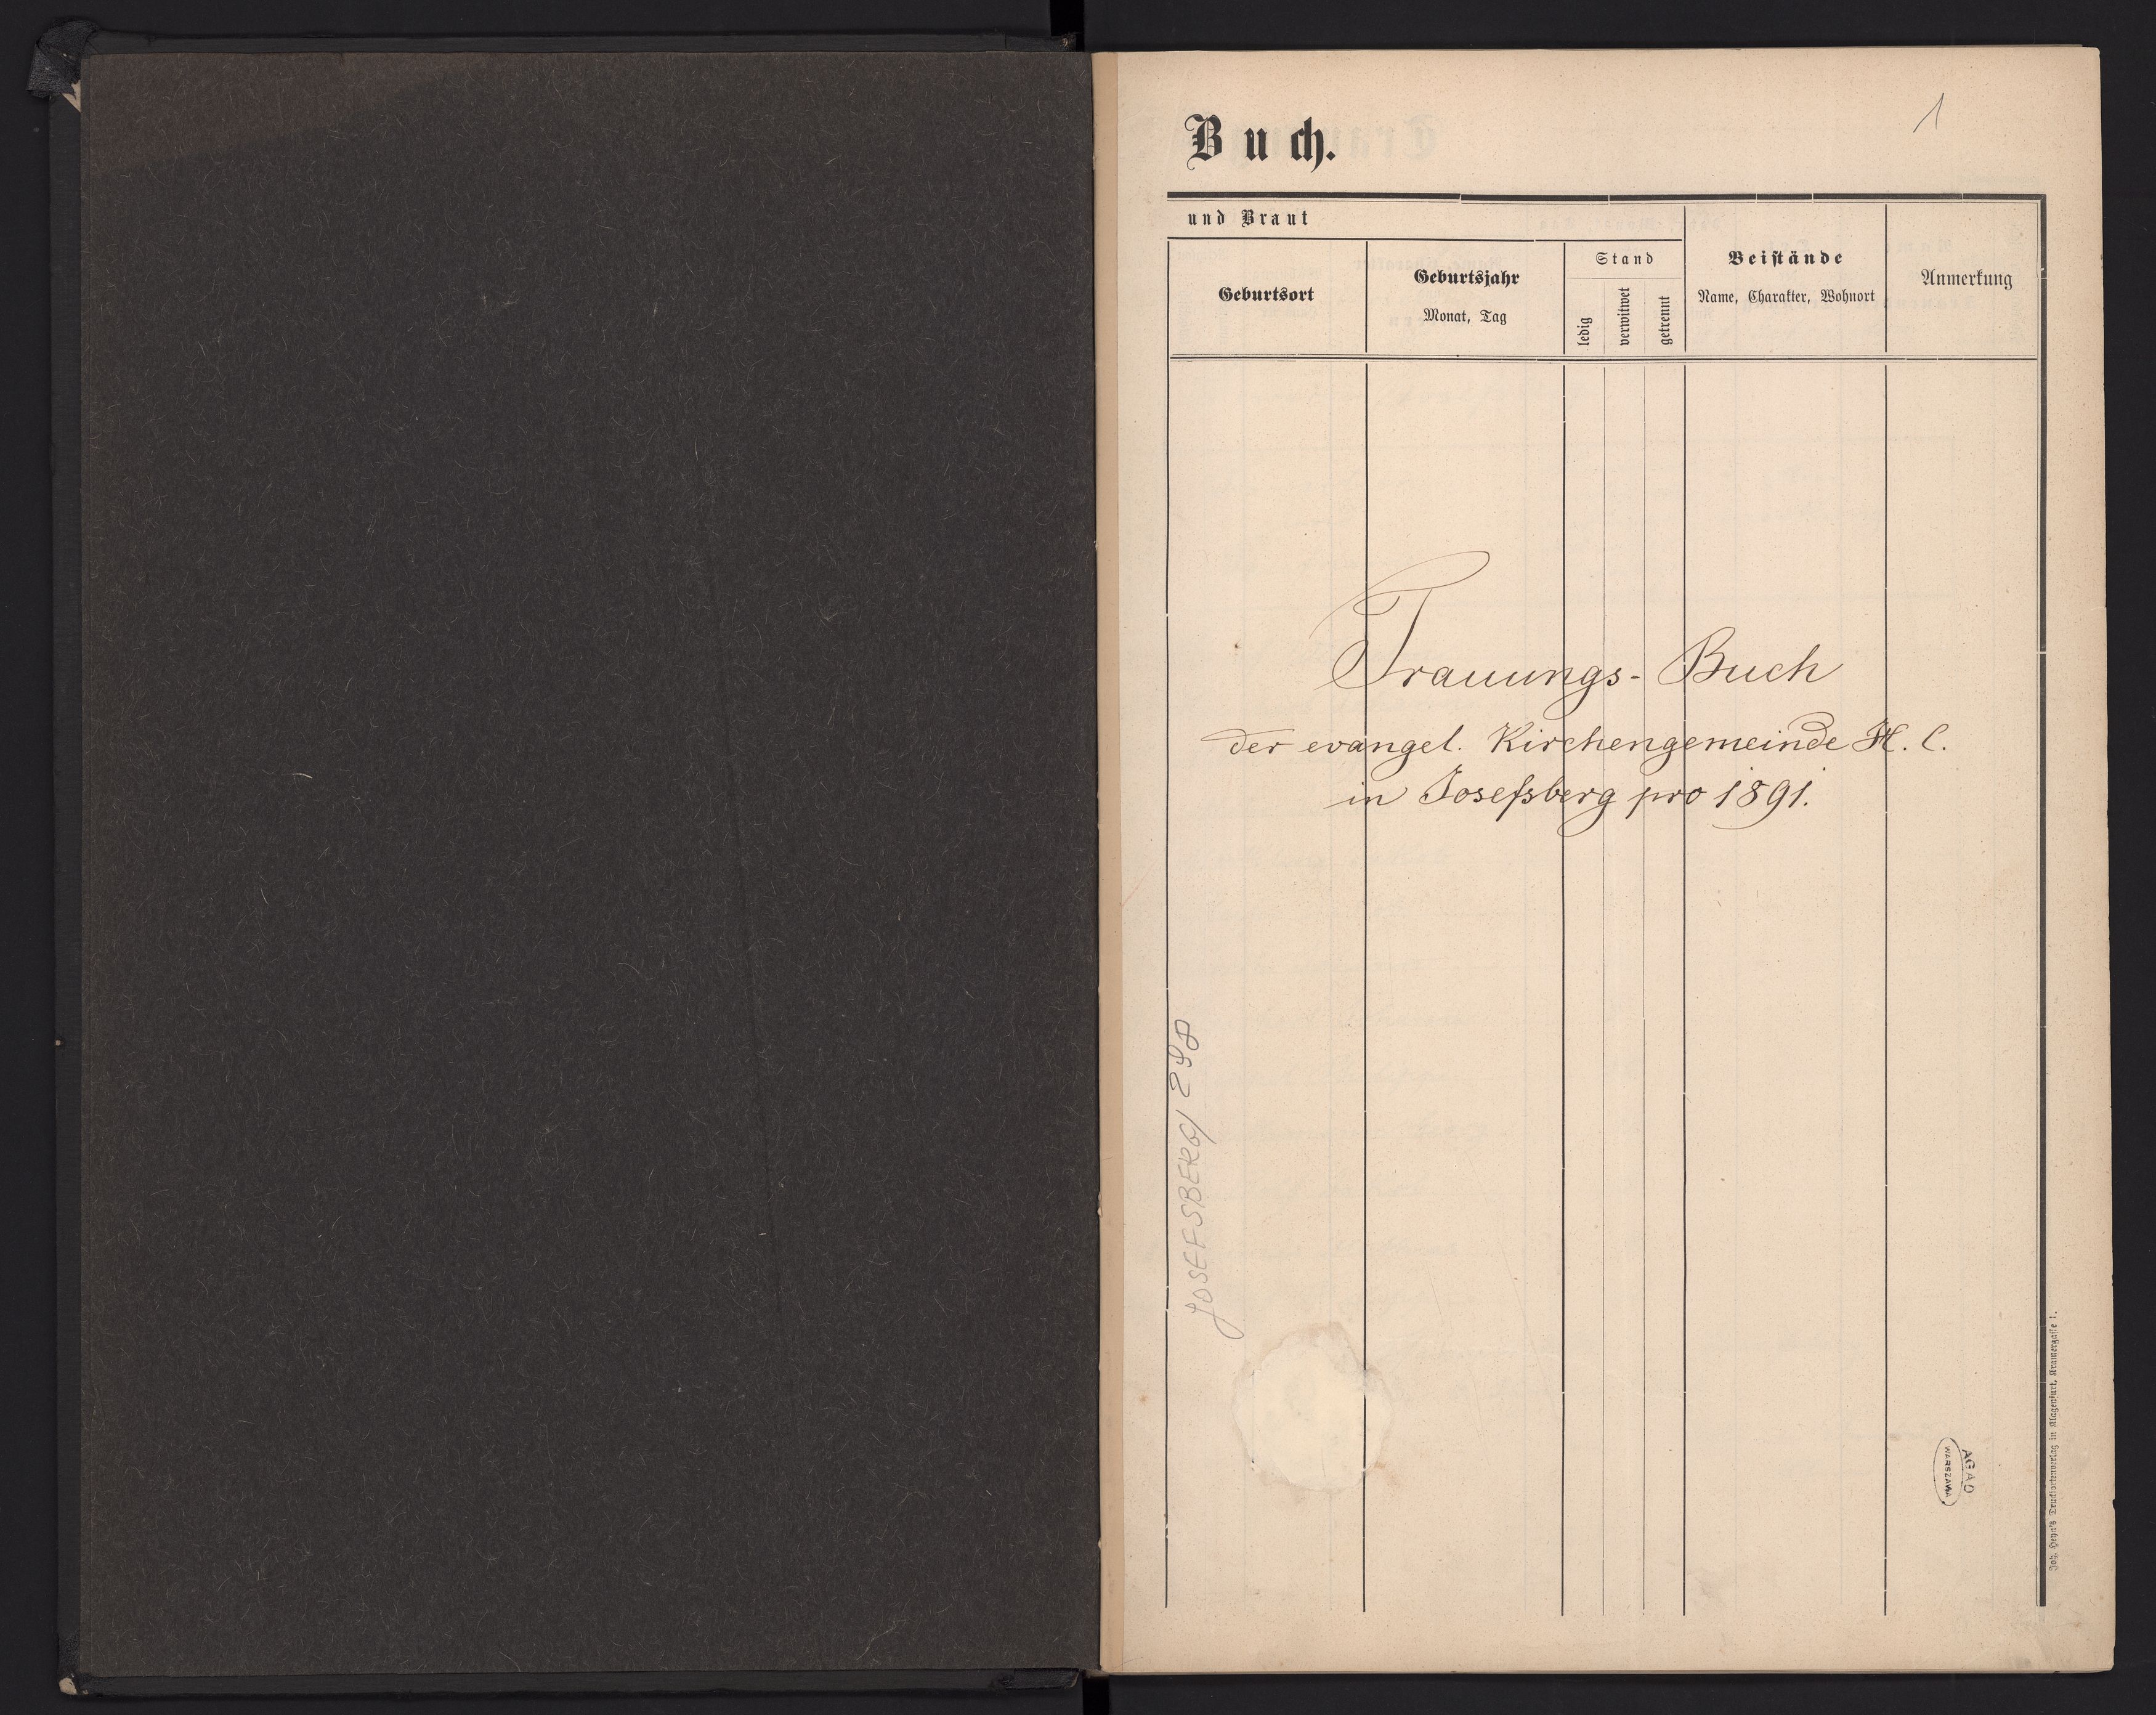 1
Buch.
und Braut
Geburtsort
Geburtsjahr
Monat, Tag
Stand
ledig
verwitwet
getrennt
Beistände
Name, Charakter, Wohnort
Anmerkung
Trauungs-Buch
der evangel. Kirchengemeinde H. C.
in Josefsberg pro 1891.
JOSEFSBERG/ 298
AGAD
WARSZAWA
Joh. Heyn's Drucksortenverlag in Klagenfurt, Kramergasse 1.